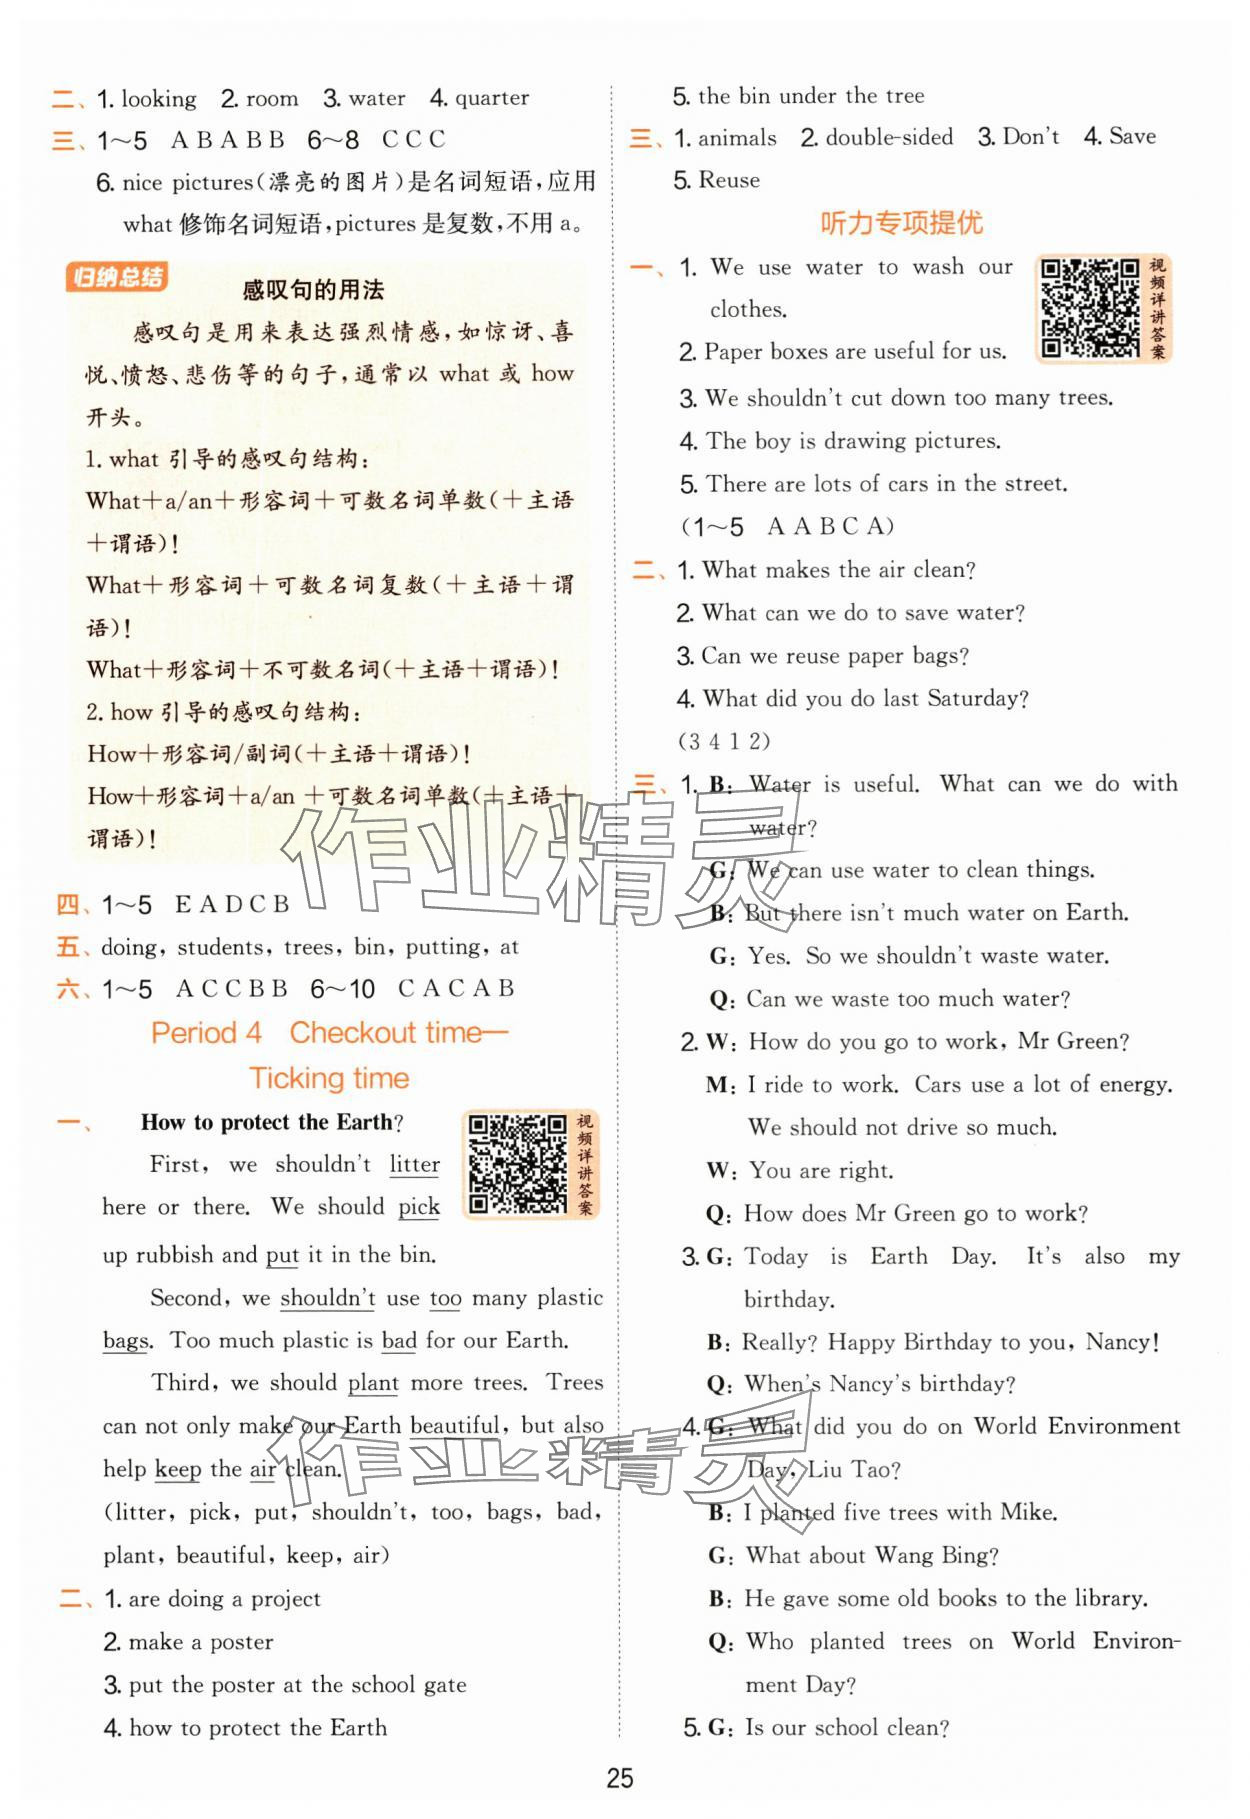 二、1. looking 2. room 3. water 4. quarter
三、1～5 A B A B B 6～8 C C C
6. nice pictures(漂亮的图片)是名词短语,应用
what修饰名词短语,pictures是复数,不用a。
归纳总结
感叹句的用法
感叹句是用来表达强烈情感,如惊讶、喜
悦、愤怒、悲伤等的句子,通常以 what 或 how
开头。
1. what 引导的感叹句结构:
What+a/an+形容词+可数名词单数(+主语
+谓语)!
What+形容词+可数名词复数(+主语+谓
语)!
What+形容词+不可数名词(+主语+谓语)!
2. how引导的感叹句结构:
How+形容词/副词(+主语+谓语)!
How+形容词+a/an +可数名词单数(+主语+
谓语)!
四、1～5 E A D C B
五、doing, students, trees, bin, putting, at
六、1～5 A C C B B 6～10 C A C A B
Period 4 Checkout time—
Ticking time
一、 How to protect the Earth?
First, we shouldn't litter
here or there. We should pick
up rubbish and put it in the bin.
Second, we shouldn't use too many plastic
bags. Too much plastic is bad for our Earth.
Third, we should plant more trees. Trees
can not only make our Earth beautiful, but also
help keep the air clean.
(litter, pick, put, shouldn't, too, bags, bad,
plant, beautiful, keep, air)
视频详讲答案
二、1. are doing a project
2. make a poster
3. put the poster at the school gate
4. how to protect the Earth
5. the bin under the tree
三、1. animals 2. double-sided 3. Don't 4. Save
5. Reuse
听力专项提优
一、1. We use water to wash our
clothes.
2. Paper boxes are useful for us.
视频详讲答案
3. We shouldn't cut down too many trees.
4. The boy is drawing pictures.
5. There are lots of cars in the street.
(1～5 A A B C A)
二、1. What makes the air clean?
2. What can we do to save water?
3. Can we reuse paper bags?
4. What did you do last Saturday?
(3 4 1 2)
三、1. B: Water is useful. What can we do with
water?
G: We can use water to clean things.
B: But there isn't much water on Earth.
G: Yes. So we shouldn't waste water.
Q: Can we waste too much water?
2. W: How do you go to work, Mr Green?
M: I ride to work. Cars use a lot of energy.
We should not drive so much.
W: You are right.
Q: How does Mr Green go to work?
3. G: Today is Earth Day. It's also my
birthday.
B: Really? Happy Birthday to you, Nancy!
Q: When's Nancy's birthday?
4. G: What did you do on World Environment
Day, Liu Tao?
B: I planted five trees with Mike.
G: What about Wang Bing?
B: He gave some old books to the library.
Q: Who planted trees on World Environ-
ment Day?
5. G: Is our school clean?
作业精灵
作业精灵
25